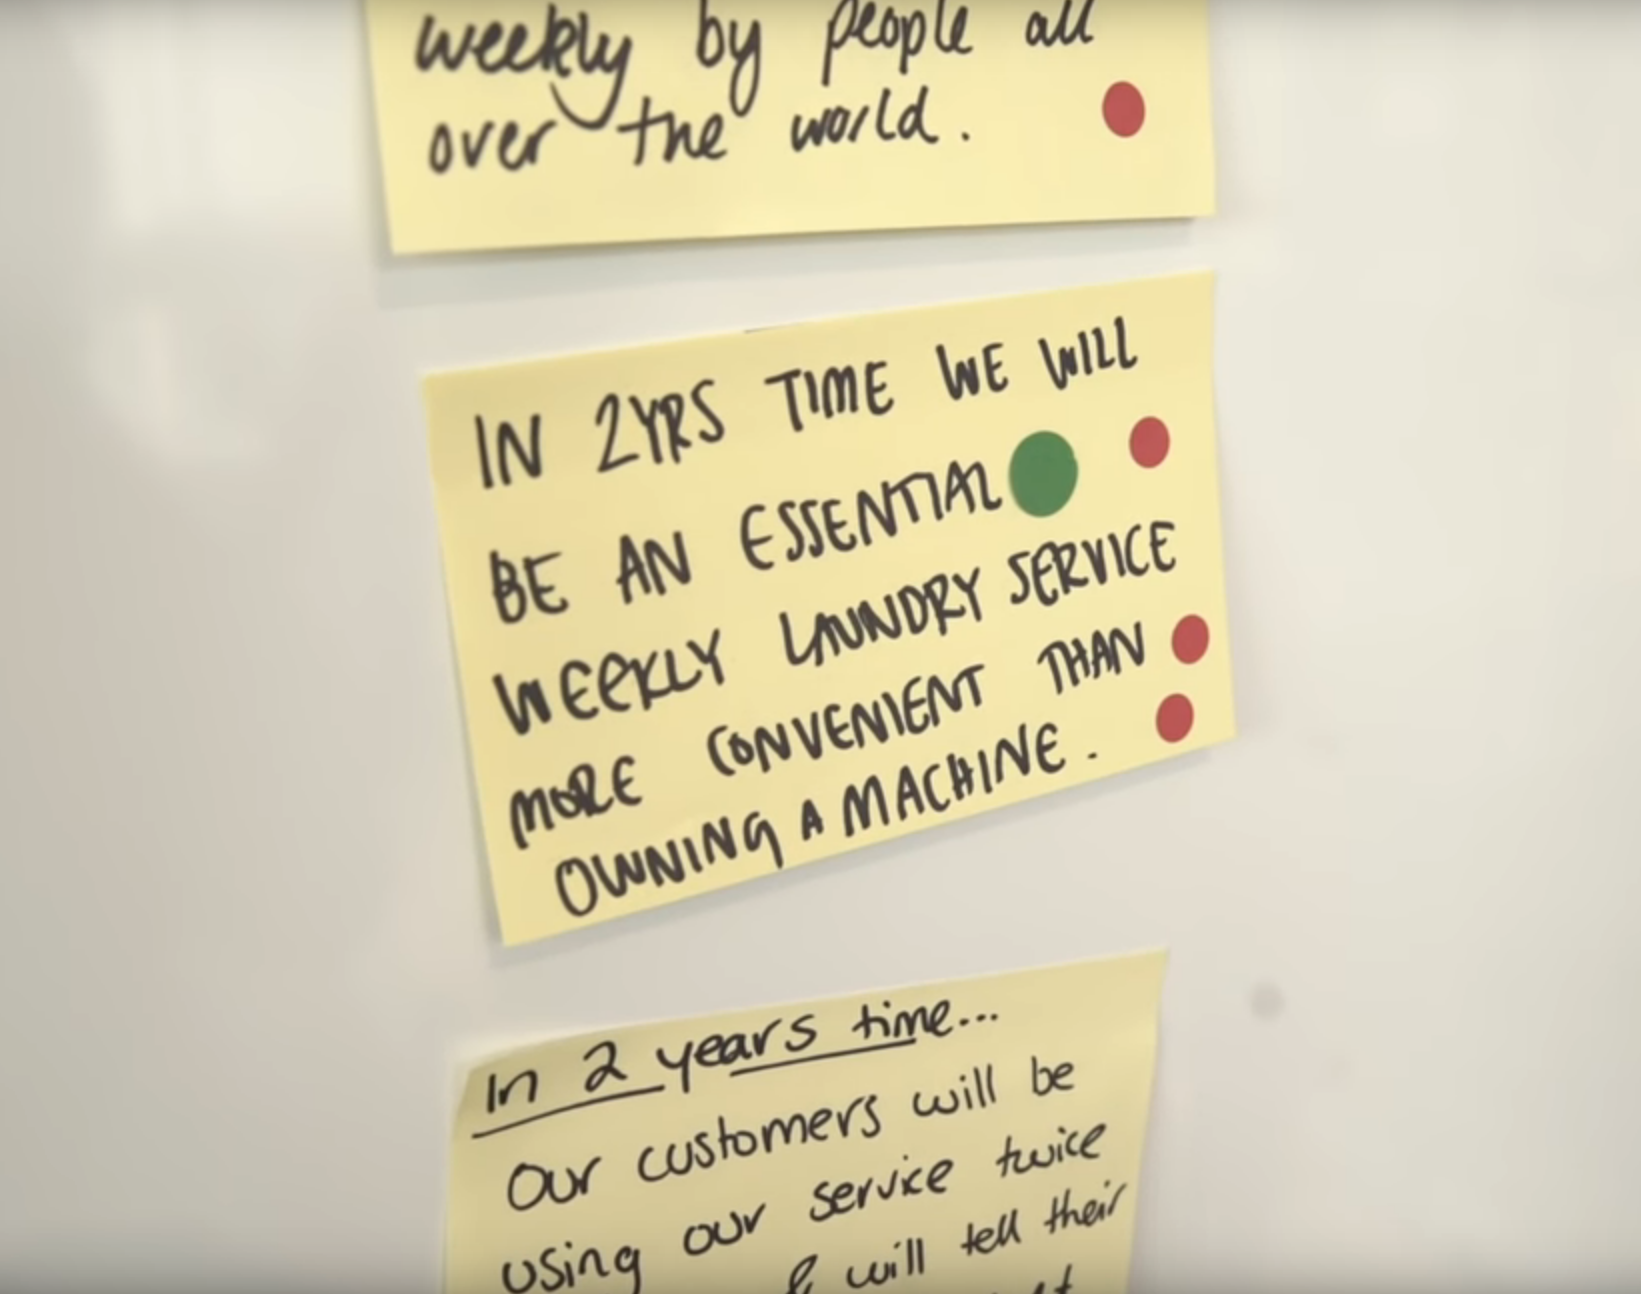 weekly by people all
over the world.
IN 2YRS TIME WE WILL
BE AN ESSENTIAL
WEEKLY LAUNDRY SERVICE
MORE CONVENIENT THAN
OWNING A MACHINE.
In 2 years time...
Our customers will be
using our service twice
& will tell their